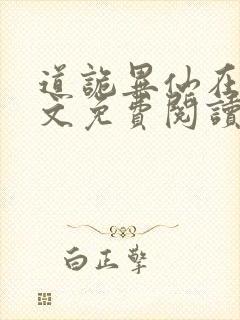 道詭異仙在
文免費閱讀
白正擎